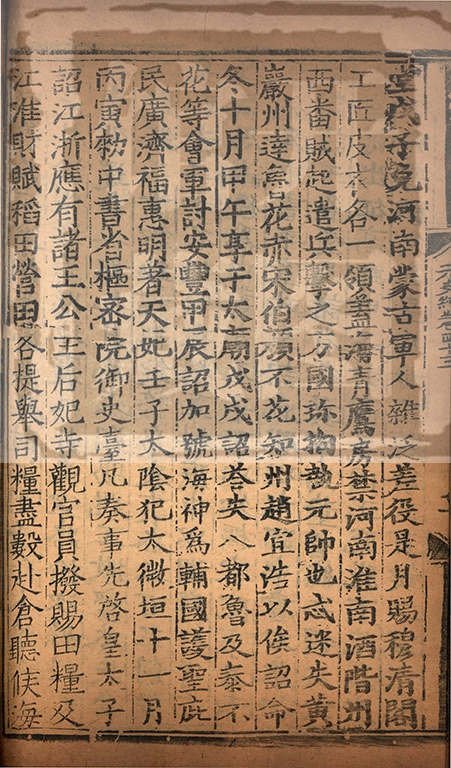 堂戊子免河南蒙古軍人雜泛差役是月賜穆清閣
工匠皮衣各一領蓋海青鷹房禁河南淮南酒階州
西番賊起遣兵擊之方國珍拘執元帥也忒迷失黃
巖州達魯花赤宋伯顏不花知州趙宜浩以俟詔命
冬十月甲午享于太廟戊戌詔荅失八都魯及泰不
花等會軍討安豐甲辰詔加號海神爲輔國護聖庇
民廣濟福惠明著天妃壬子太陰犯太微垣十一月
丙寅勑中書省樞密院御史臺凡奏事先啓皇太子
詔江浙應有諸王公王后妃寺觀官員撥賜田糧及
江淮財賦稻田營田各提舉司糧盡數赴倉聽候海